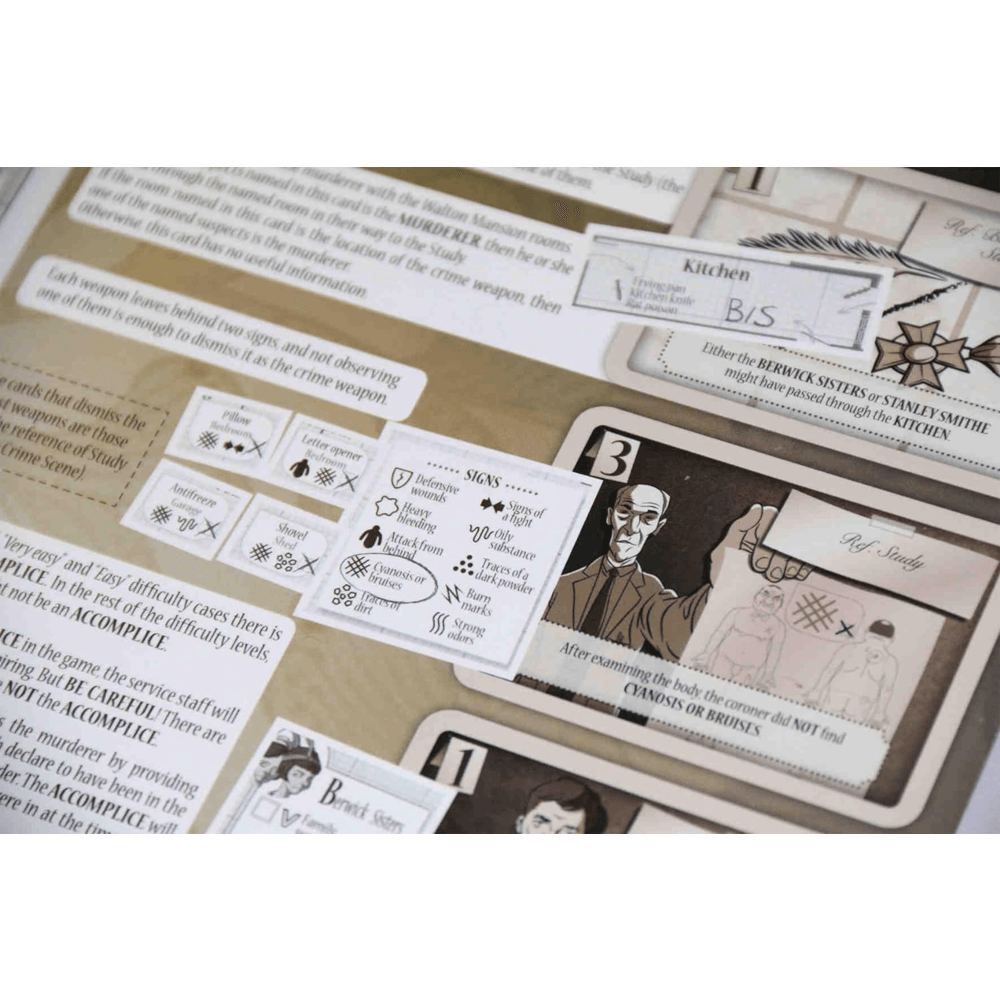 is named in this card is the MURDERER, then he or she
murderer with the Walton Mansion rooms.
Study (the
of them.
through the named room in their way to the Study.
If the room named in this card is the location of the crime weapon, then
one of the named suspects is the murderer.
Otherwise, this card has no useful information.
Each weapon leaves behind two signs, and not observing
one of them is enough to dismiss it as the crime weapon.
cards that dismiss the
weapons are those
reference of Study
Crime Scene).
Pillow
Bedroom
Letter opener
Bedroom
Antifreeze
Garage
Shovel
Shed
SIGNS
Defensive
wounds
Heavy
bleeding
Attack from
behind
Cyanosis or
bruises
Traces of
dirt
Signs of
a fight
Oily
substance
Traces of a
dark powder
Burn
marks
Strong
odors
Kitchen
Frying pan
Kitchen knife
Rat poison
B/S
1
Ref.
Either the BERWICK SISTERS or STANLEY SMITHE
might have passed through the KITCHEN.
3
Ref. Study
After examining the body, the coroner did NOT find
CYANOSIS OR BRUISES
1
Berwick Sisters
Family
"Very easy" and "Easy" difficulty cases there is
. In the rest of the difficulty levels,
not be an ACCOMPLICE.
in the game, the service staff will
But BE CAREFUL! There are
NOT the ACCOMPLICE.
the murderer by providing
declare to have been in the
The ACCOMPLICE will
were in at the